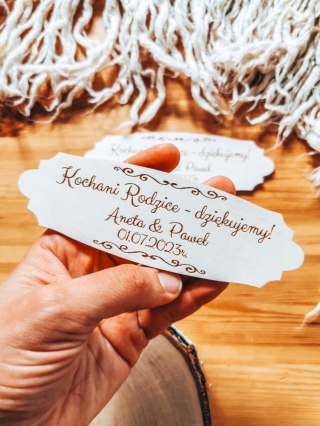 Kochani Rodzice - dziękujemy!
Aneta & Paweł
01.07.2023r.
Kocha
dziękujemy!